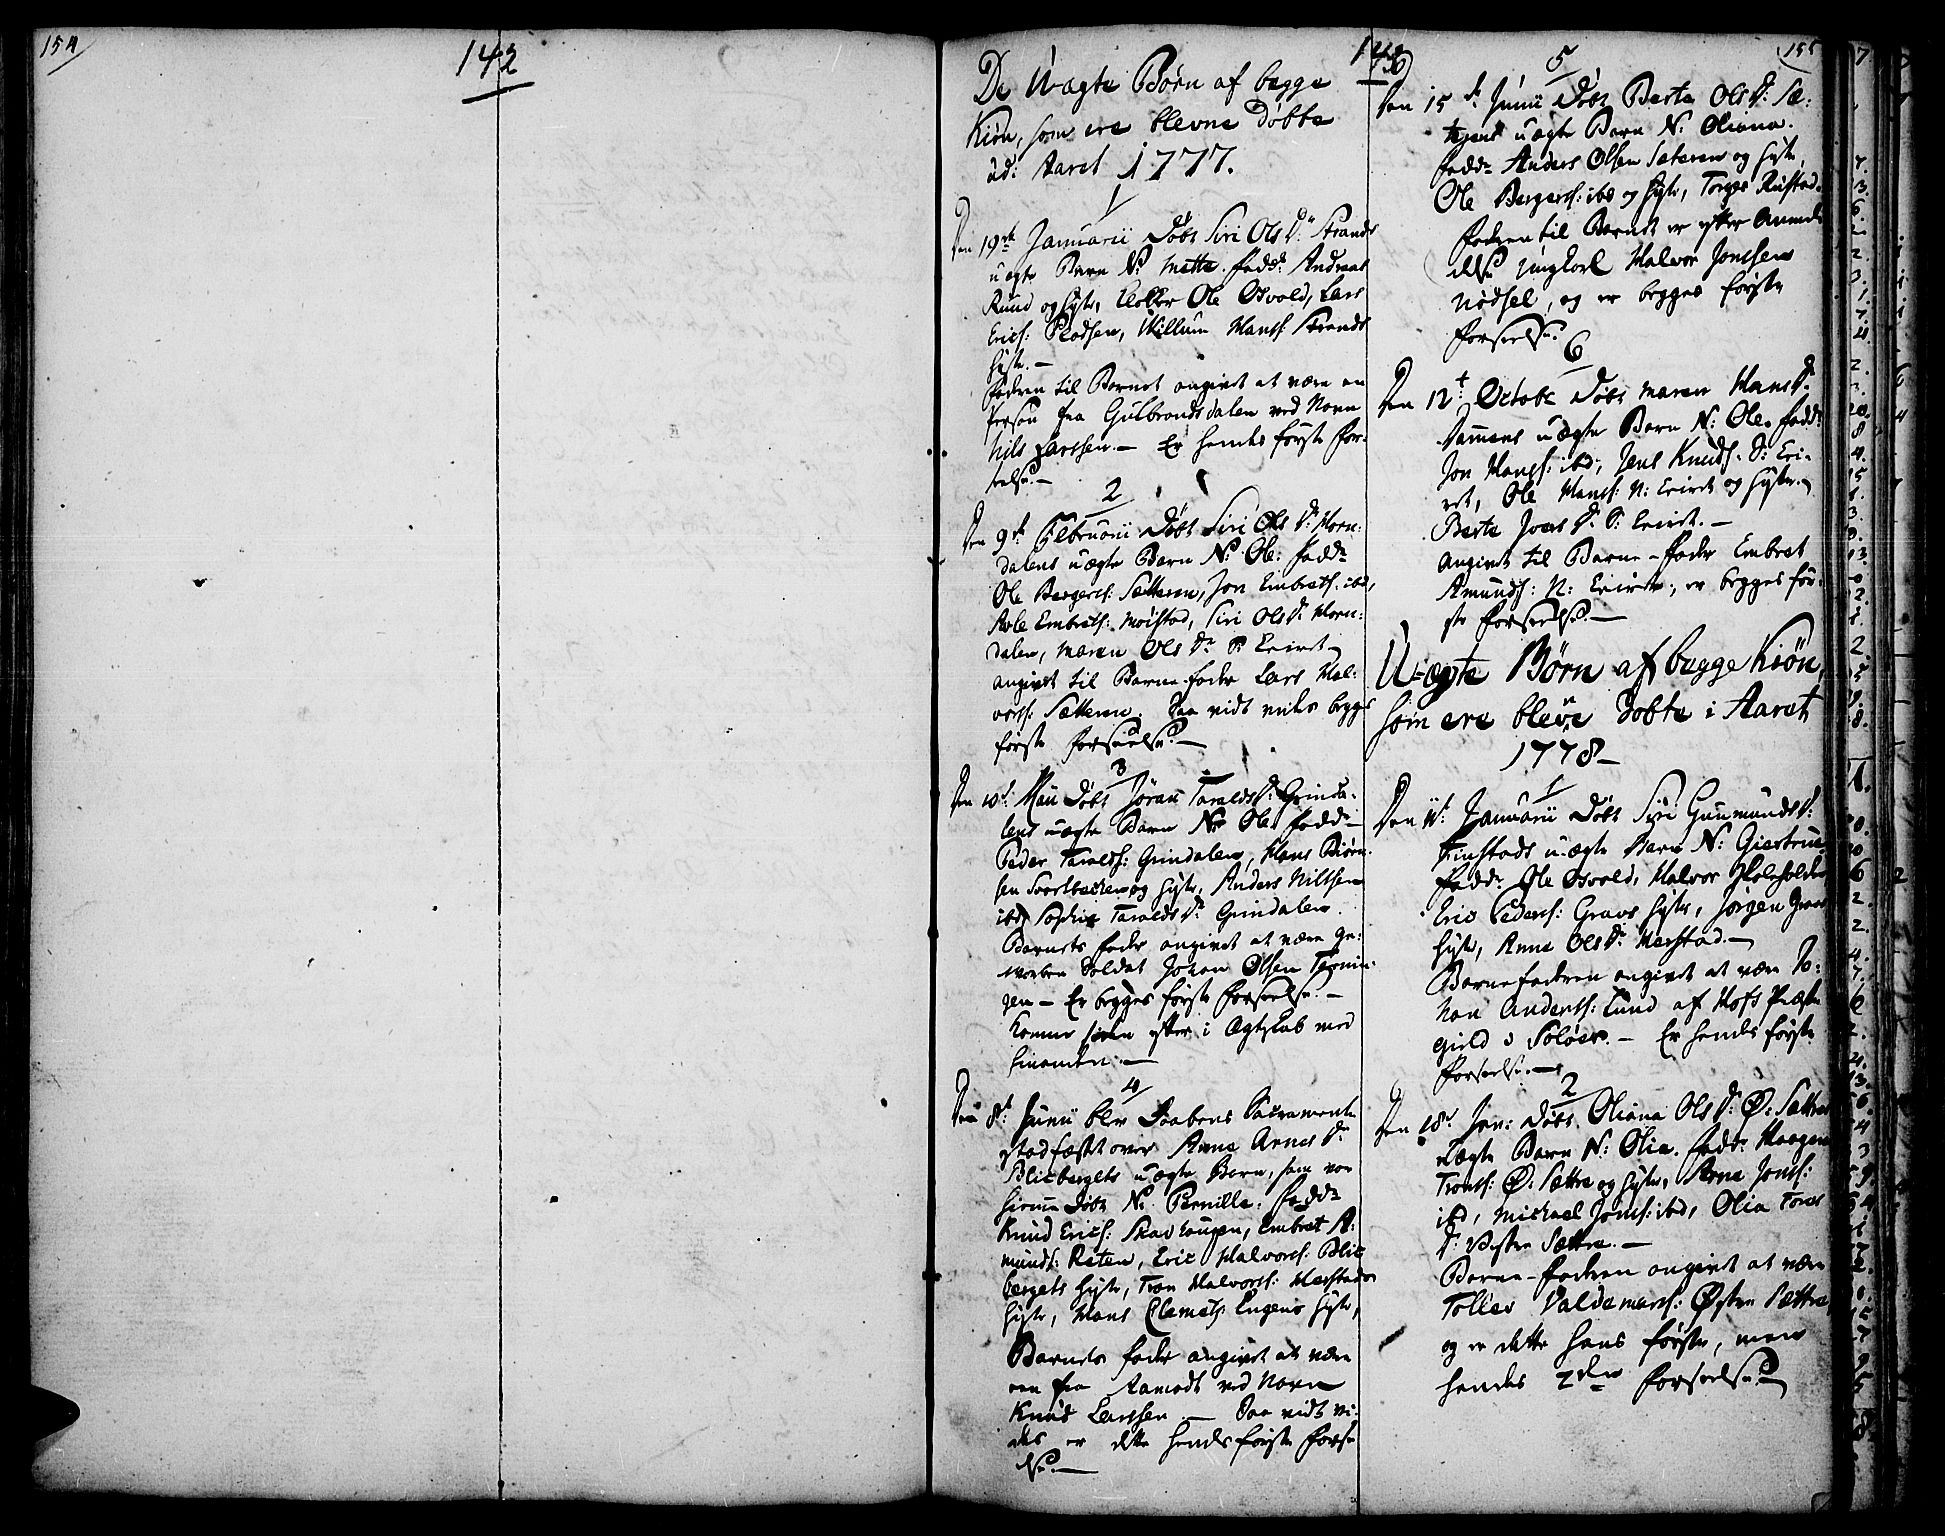 154
142
143
155
De Uægte Børn af begge
Kiøn, som ere blevne Døbte
ud: Aaret 1777.
1
Den 19de Januarii Døbt Siri Ols Dr Strands
uægte Barn N: Mette. Fadd: Andreas
Rund og Hustr, Ole Osvold, Lars
Erics: Willum Hans: Strands
Hustr. —
Faderen til Barnet angivet at være en
Person fra Gulbrandsdalen ved Navn
Nils Larssen. — Er hendes første For-
seelse. —
2
Den 9de Februarii Døbt Siri Ols Dr Horn:
dalens uægte Barn N: Ole: Fadd:
Ole Bergers: Sætteren, Jon Embrets: ibd,
Embrets: Moistad, Siri Ols Dr Horn:
dalen, Maren Ols Dr S: Evenst
angivet til Barne-Fader Lars Hal:
vors: Sætteren. Saa vidt vides begges
første Forseelse. —
3
Den 10de Maii Døbt Jøran Taralds D: Grinda-
lens uægte Barn N: Ole. Fadd:
Peder Taralds: Grindalen, Hans Biørn-
sen Svartbecken og Hustr, Anders Nilssen
ibd, Sophie Taralds Dr Grindalen.
Barnets Fader angivet at være ge-
worben Soldat Johan Olsen Termin-
gen — Er begges første Forseelse. —
Komme siden efter i Ægteskab med
hinanden. —
4
Den 8de Junii blev Daabens Sacramente
stadfæstet over Anne Arnes Dr
Blicbergets uægte Barn, som var
hiemme Døbt N: Pernille. Fadd:
Knud Erics: Embret A-
munds: Røten, Eric Halvors: Blic
bergets Hustr, Tron Halvors: Harstads
Hustr, Hans Clemets: Engens Hustr,
Barnets Fader angivet at være
en fra Aamodt ved Navn
Knud Larssen — Saa vidt vi-
des er dette hendes første Forse-
else. —
5
Den 15de Junii Døbt Berte Ols D: Sæ-
terens uægte Barn N: Oliana.
Fadd: Anders Olsen Sæteren og Hustr,
Ole Bergers: ibd og Hustr, Torger Rustad.
Faderen til Barnet er efter Anmeld
else ungkarl Halvor Jonssen
Nødsel, og er begges første
Forseelse.
6
Den 12te Octobr Døbt Maren Hans Dr
Dammens uægte Barn N: Ole. Fadd:
Jon Hans: ibd, Jens Knuds: S: Eve-
nst, Ole Hans: N: Evenst og Hustr. —
Berte Joens Dr S: Evenst. —
angivet til Barne-Fader Embret
Amunds: N: Evenst; er begges før-
ste Forseelse. —
U-ægte Børn af begge Kiøn,
som ere blevne Døbte i Aaret
1778 —
1
Den 11te Januarii Døbt Syri Gunmunds D:
Finstads u-ægte Barn N: Giertrue
Fadd: Ole Osvold, Halvor
Eric Peders: Gravs Hustr, Jørgen Gravs
Hustr, Anne Ols Dr Harstad. —
Barnefaderen angivet at være Jo-
han Anders: Lund af Hofs Præste
gield i Soløer. — Er hendes første
Forseelse. —
2
Den 18de Jan: Døbt Oliana Ols Dr Ø: Sættres
uægte Barn N: Olia. Fadd: Haagen
Trons: Ø: Sættre og Hustr, Arne Jons:
ibd, Michael Jons: ibd, Olia Tores
Dr Vestre Sættre. —
Barne-Faderen angivet at være
Tollev Valdemars: Østre Sættre
og er dette hans første, men
hendes 2den Forseelse. —